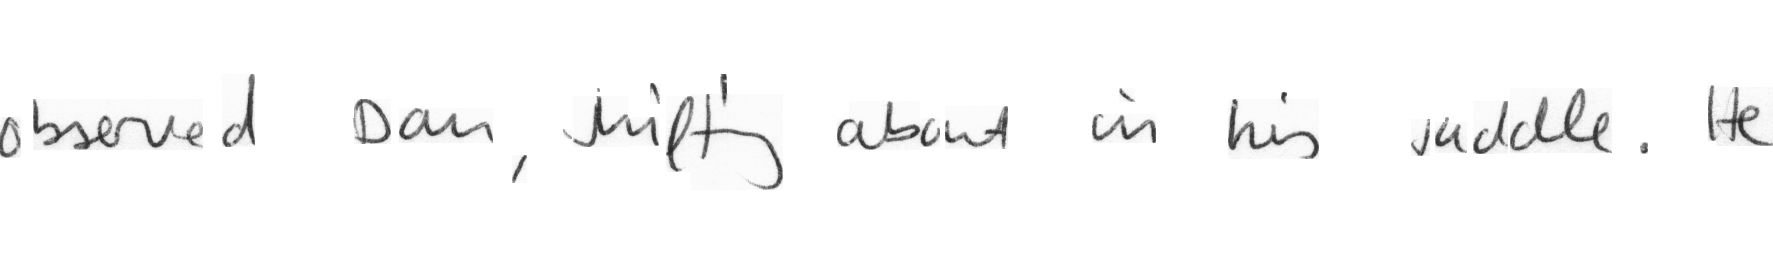 observed Dan, shifting about in his saddle. He